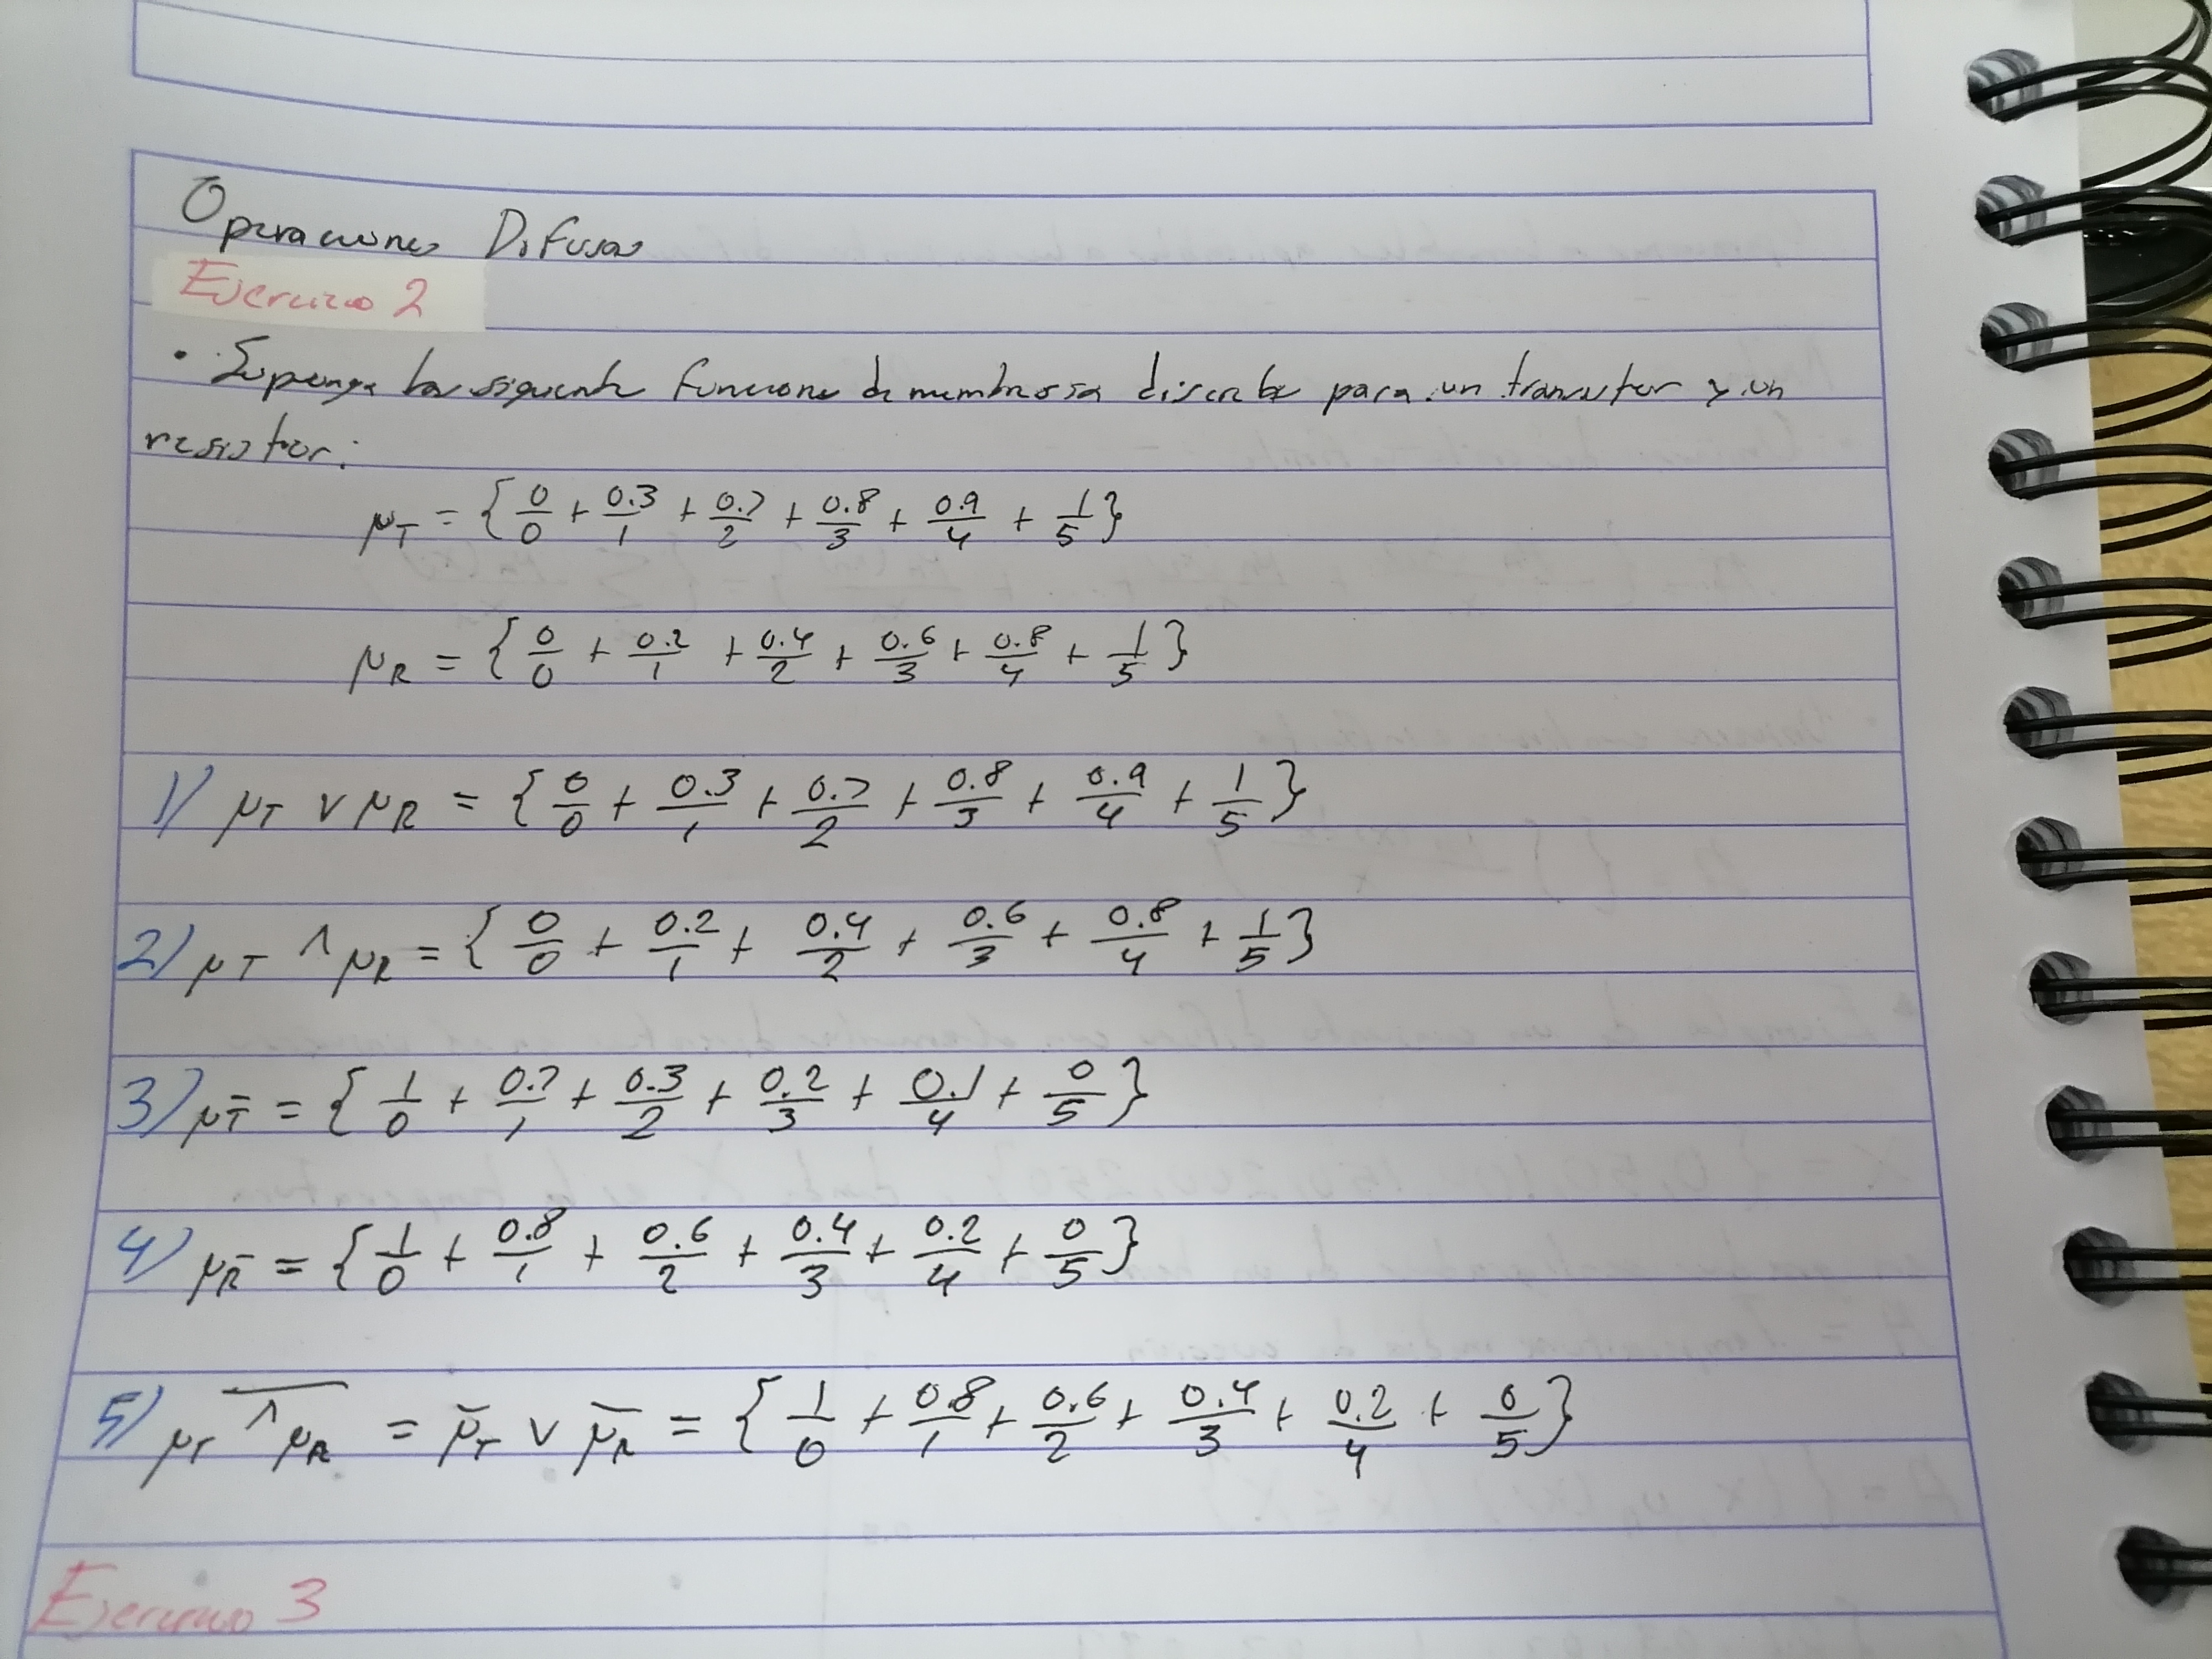 Operaciones Difusas
Ejercicio 2
• Suponga las siguiente funciones de membresia discreta para un transistor y un
resistor:
μT = {0/0 + 0.3/1 + 0.7/2 + 0.8/3 + 0.9/4 + 1/5}
μR = {0/0 + 0.2/1 + 0.4/2 + 0.6/3 + 0.8/4 + 1/5}
1) μT ∨ μR = {0/0 + 0.3/1 + 0.7/2 + 0.8/3 + 0.9/4 + 1/5}
2) μT ∧ μR = {0/0 + 0.2/1 + 0.4/2 + 0.6/3 + 0.8/4 + 1/5}
3) μT̄ = {1/0 + 0.7/1 + 0.3/2 + 0.2/3 + 0.1/4 + 0/5}
4) μR̄ = {1/0 + 0.8/1 + 0.6/2 + 0.4/3 + 0.2/4 + 0/5}
5) \overline{μT ∧ μR} = μ̄T ∨ μ̄R = {1/0 + 0.8/1 + 0.6/2 + 0.4/3 + 0.2/4 + 0/5}
Ejercicio 3